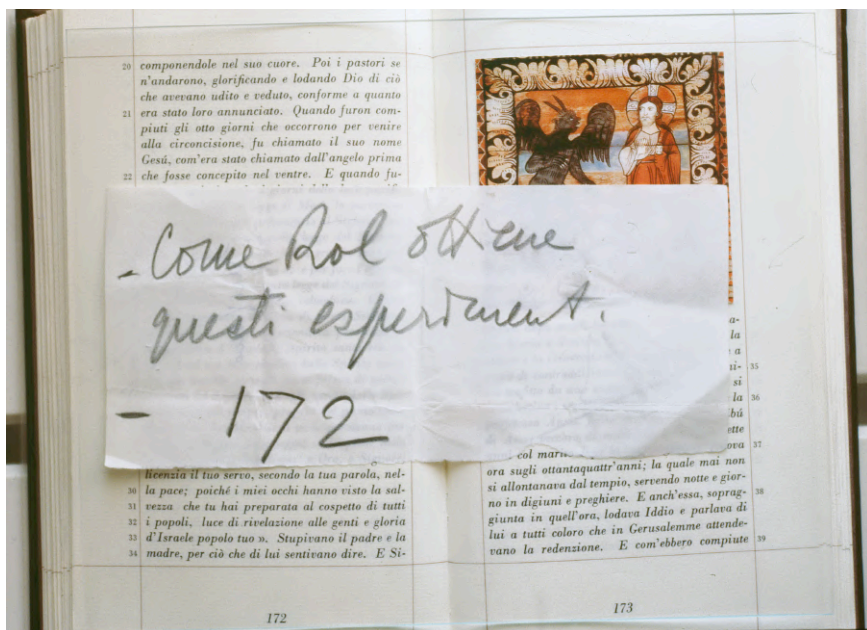 20 componendole nel suo cuore. Poi i pastori se
n'andarono, glorificando e lodando Dio di ciò
che avevano udito e veduto, conforme a quanto
21 era stato loro annunciato. Quando furon com-
piuti gli otto giorni che occorrono per venire
alla circoncisione, fu chiamato il suo nome
Gesú, com'era stato chiamato dall'angelo prima
22 che fosse concepito nel ventre. E quando fu-
- Come Rol ottene
questi esperiment.
- 172
licenzia il tuo servo, secondo la tua parola, nel-
30 la pace; poiché i miei occhi hanno visto la sal-
31 vezza che tu hai preparata al cospetto di tutti
32 i popoli, luce di rivelazione alle genti e gloria
33 d'Israele popolo tuo ». Stupivano il padre e la
34 madre, per ciò che di lui sentivano dire. E Si-
172
a-
la
a
ui- 35
si
la 36
bú
ette
ova 37
col
ora sugli ottantaquattr'anni; la quale mai non
si allontanava dal tempio, servendo notte e gior-
no in digiuni e preghiere. E anch'essa, soprag- 38
giunta in quell'ora, lodava Iddio e parlava di
lui a tutti coloro che in Gerusalemme attende-
vano la redenzione. E com'ebbero compiute 39
173